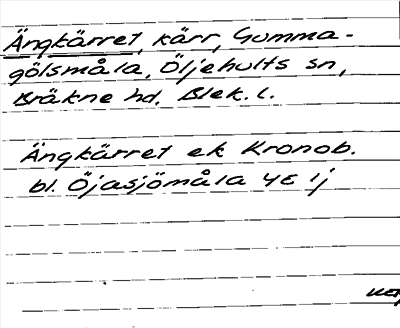 Ängkärret, kärr, Gumma-
gölsmåla, Öljehults sn,
Bräkne hd. Blek. l.
Ängkärret ek Kronob.
bl. Öjasjömåla 4E 1j